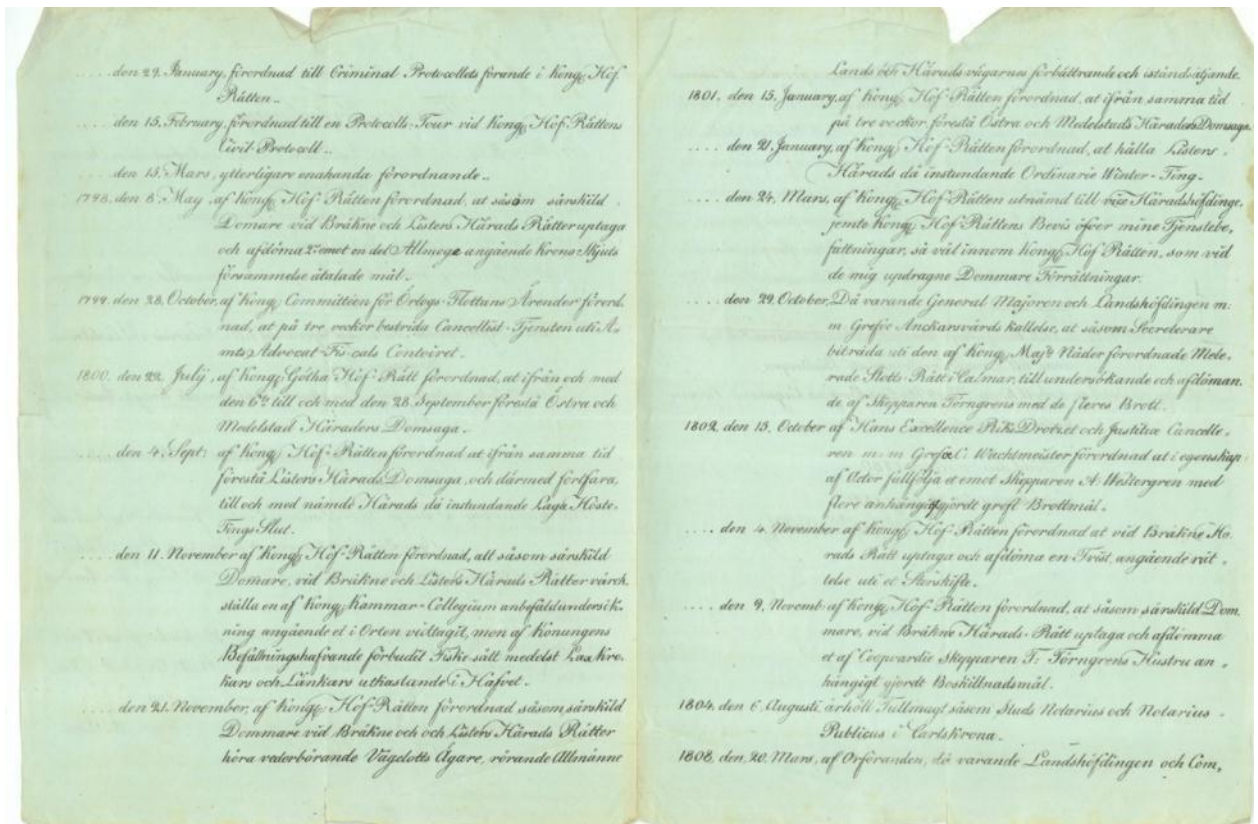 .... den 29. January, förordnad till Criminal Protocollets förande i Kong. Hof
Rätten..
.... den 15. February, förordnad till en Protocolls-Tour vid Kong. Hof-Rättens
Civil-Protocoll..
.... den 15. Mars, ytterligare enahanda förordnande..
1798. den 8. May, af Kong. Hof-Rätten förordnad, at såsom särskild
Domare vid Bräkne och Listers Härads Rätter uptaga
och afdöma emot en del Allmoge angående Krono-Skjuts
försummelse åtalade mål.
1799. den 28. October, af Kong. Committéen för Örlogs-Flottans Ärender förord-
nad, at på tre veckor bestrida Cancellist-Tjensten uti A-
mts Advocat-Fiscals Contoiret.
1800. den 22. Julij, af Kong. Götha Hof-Rätt förordnad, at ifrån och med
den 6te till och med den 28. September förestå Östra och
Medelstad Häraders Domsaga.
.... den 4. Sept: af Kong. Hof-Rätten förordnad at ifrån samma tid
förestå Listers Härads Domsaga, och därmed fortfara,
till och med nämde Härads då instundande Laga Höste-
Tings Slut.
.... den 11. November af Kong. Hof-Rätten förordnad, att såsom särskild
Domare, vid Bräkne och Listers Härads-Rätter värck-
ställa en af Kong. Kammar-Collegium anbefald undersök-
ning angående et i Orten vidtagit, mon af Konungens
Befallningshafvande förbudit Fiske sätt medelst Lax Kro-
kars och Länkars utkastande i Hafvet.
.... den 21. November, af Kong. Hof-Rätten förordnad såsom särskild
Dommare vid Bräkne och och Listers Härads Rätter
höra vederbörande Vägelotts Ägare, rörande Allmänne
Lands och Härads vägarnes förbättrande och iståndsätjande.
1801. den 15. January, af Kong. Hof-Rätten förordnad, at ifrån samma tid
på tre veckor förestå Östra och Medelstads Häraders Domsaga.
.... den 21. January, af Kong. Hof-Rätten förordnad, at hålla Listers
Härads då instundande Ordinarie Winter-Ting-
.... den 24. Mars, af Kong. Hof-Rätten utnämd till vice Häradshöfdinge,
jemte Kong. Hof-Rättens Bevis öfver mine Tjenstebe-
fattningar, så väl innom Kong. Hof-Rätten, som vid
de mig updragne Dommare Förrättningar.
den 29. October, Då varande General Majoren och Landshöfdingen m:
m Grefve Anckarsvärds kallelse, at såsom Secreterare
biträda uti den af Kong. Maj:t Nåder förordnade Mele-
rade Slotts-Rätt i Calmar, till undersökande och afdöman-
de af Skepparen Törngrens med de fleres Brott.
1802. den 15. October af Hans Excellence Riks Drotzet och Justitiæ Cancelle-
ren m: m Grefve C: Wachtmeister förordnad at i egenskap
af Actor fullfölja et emot Skepparen A: Westergren med
flere anhängigjordt groft Brottmål.
.... den 4. November af Kong. Hof-Rätten förordnad at vid Bräkne Hä-
rads Rätt uptaga och afdöma en Tvist, angående rät-
telse uti et Storskifte.
.... den 9. Novemb: af Kong. Hof-Rätten förordnad, at såsom särskild Dom-
mare, vid Bräkne Härads-Rätt uptaga och afdömma
et af Coopvardie Skepparen T: Törngrens Hustru an-
hängigt gjordt Boskillnadsmål.
1804. den 6. Augusti, ärhöll Fullmagt såsom Stads Notarius och Notarius
Publicus i Carlskrona.
1808. den 20. Mars, af Orföranden, då varande Landshöfdingen och Com-